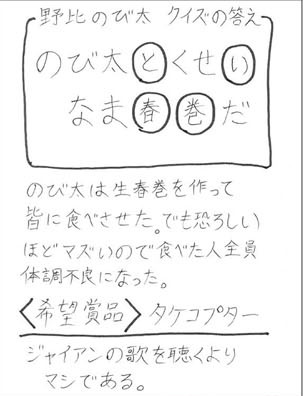 野比のび太 クイズの答え
のび太とくせい
なま春巻だ
のび太は生春巻を作って
皆に食べさせた。でも恐ろしい
ほどマズいので食べた人全員
体調不良になった。
〈希望賞品〉タケコプター
ジャイアンの歌を聴くより
マシである。